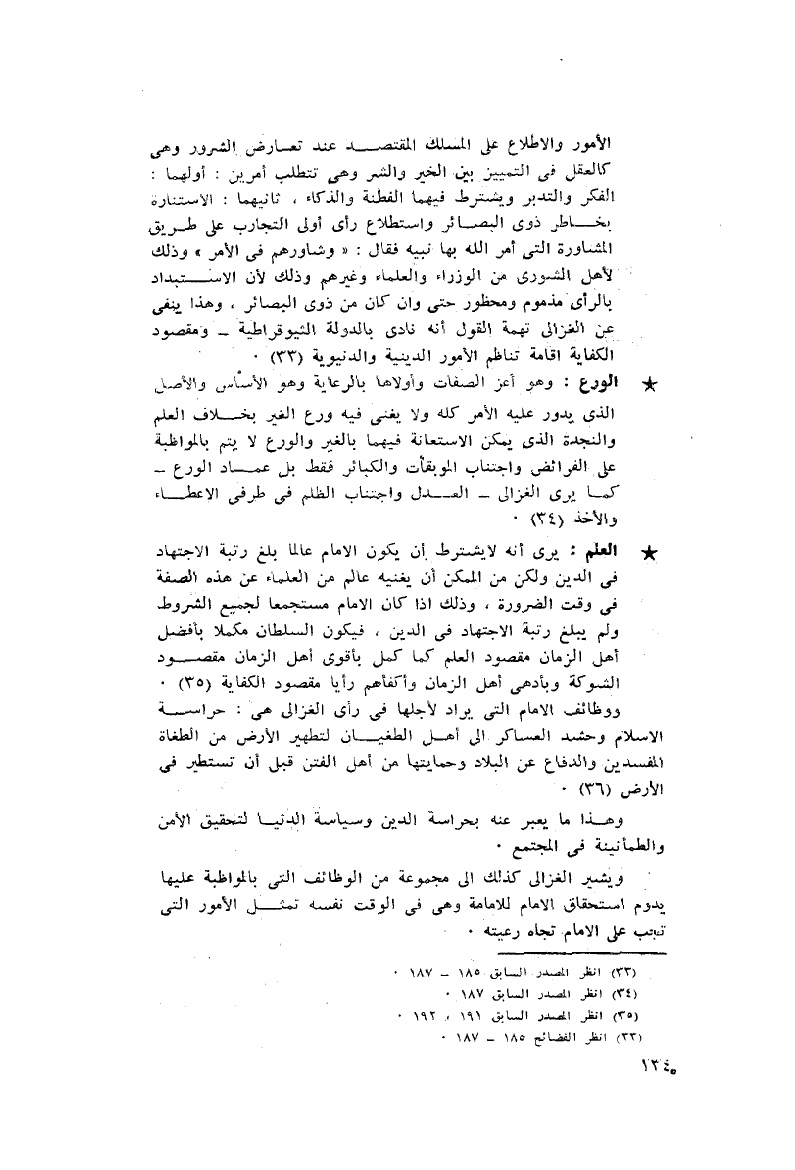 الأمور والاطلاع على المسلك المقتصد عند تعارض الشرور وهى
كالعقل فى التمييز بين الخير والشر وهى تتطلب أمرين : أولهما :
الفكر والتدبر ويشترط فيهما الفطنة والذكاء ، ثانيهما : الاستنارة
بخاطر ذوى البصائر واستطلاع رأى أولى التجارب على طريق
المشاورة التى أمر الله بها نبيه فقال : « وشاورهم فى الأمر » وذلك
لأهل الشورى من الوزراء والعلماء وغيرهم وذلك لأن الاستبداد
بالرأى مذموم ومحظور حتى وان كان من ذوى البصائر ، وهذا ينفى
عن الغزالى تهمة القول أنه نادى بالدولة الثيوقراطية – ومقصود
الكفاية اقامة تناظم الأمور الدينية والدنيوية (٣٣) ٠
★ الورع : وهو أعز الصفات وأولاها بالرعاية وهو الأساس والأصل
الذى يدور عليه الأمر كله ولا يغنى فيه ورع الغير بخلاف العلم
والنجدة الذى يمكن الاستعانة فيهما بالغير والورع لا يتم بالمواظبة
على الفرائض واجتناب الموبقات والكبائر فقط بل عماد الورع –
كما يرى الغزالى – العدل واجتناب الظلم فى طرفى الاعطاء
والأخذ (٣٤) ٠
★ العلم : يرى أنه لايشترط أن يكون الامام عالما بلغ رتبة الاجتهاد
فى الدين ولكن من الممكن أن يغنيه عالم من العلماء عن هذه الصفة
فى وقت الضرورة ، وذلك اذا كان الامام مستجمعا لجميع الشروط
ولم يبلغ رتبة الاجتهاد فى الدين ، فيكون السلطان مكملا بأفضل
أهل الزمان مقصود العلم كما كمل بأقوى أهل الزمان مقصود
الشوكة وبأدهى أهل الزمان وأكفأهم رأيا مقصود الكفاية (٣٥) ٠
ووظائف الامام التى يراد لأجلها فى رأى الغزالى هى : حراسة
الاسلام وحشد العساكر الى أهل الطغيان لتطهير الأرض من الطغاة
المفسدين والدفاع عن البلاد وحمايتها من أهل الفتن قبل أن تستطير فى
الأرض (٣٦) ٠
وهذا ما يعبر عنه بحراسة الدين وسياسة الدنيا لتحقيق الأمن
والطمأنينة فى المجتمع ٠
ويشير الغزالى كذلك الى مجموعة من الوظائف التى بالمواظبة عليها
يدوم استحقاق الامام للامامة وهى فى الوقت نفسه تمثل الأمور التى
تجب على الامام تجاه رعيته ٠
(٣٣) انظر المصدر السابق ١٨٥ – ١٨٧ ٠
(٣٤) انظر المصدر السابق ١٨٧ ٠
(٣٥) انظر المصدر السابق ١٩١ ، ١٩٢ ٠
(٣٣) انظر الفضائح ١٨٥ – ١٨٧ ٠
١٢٤